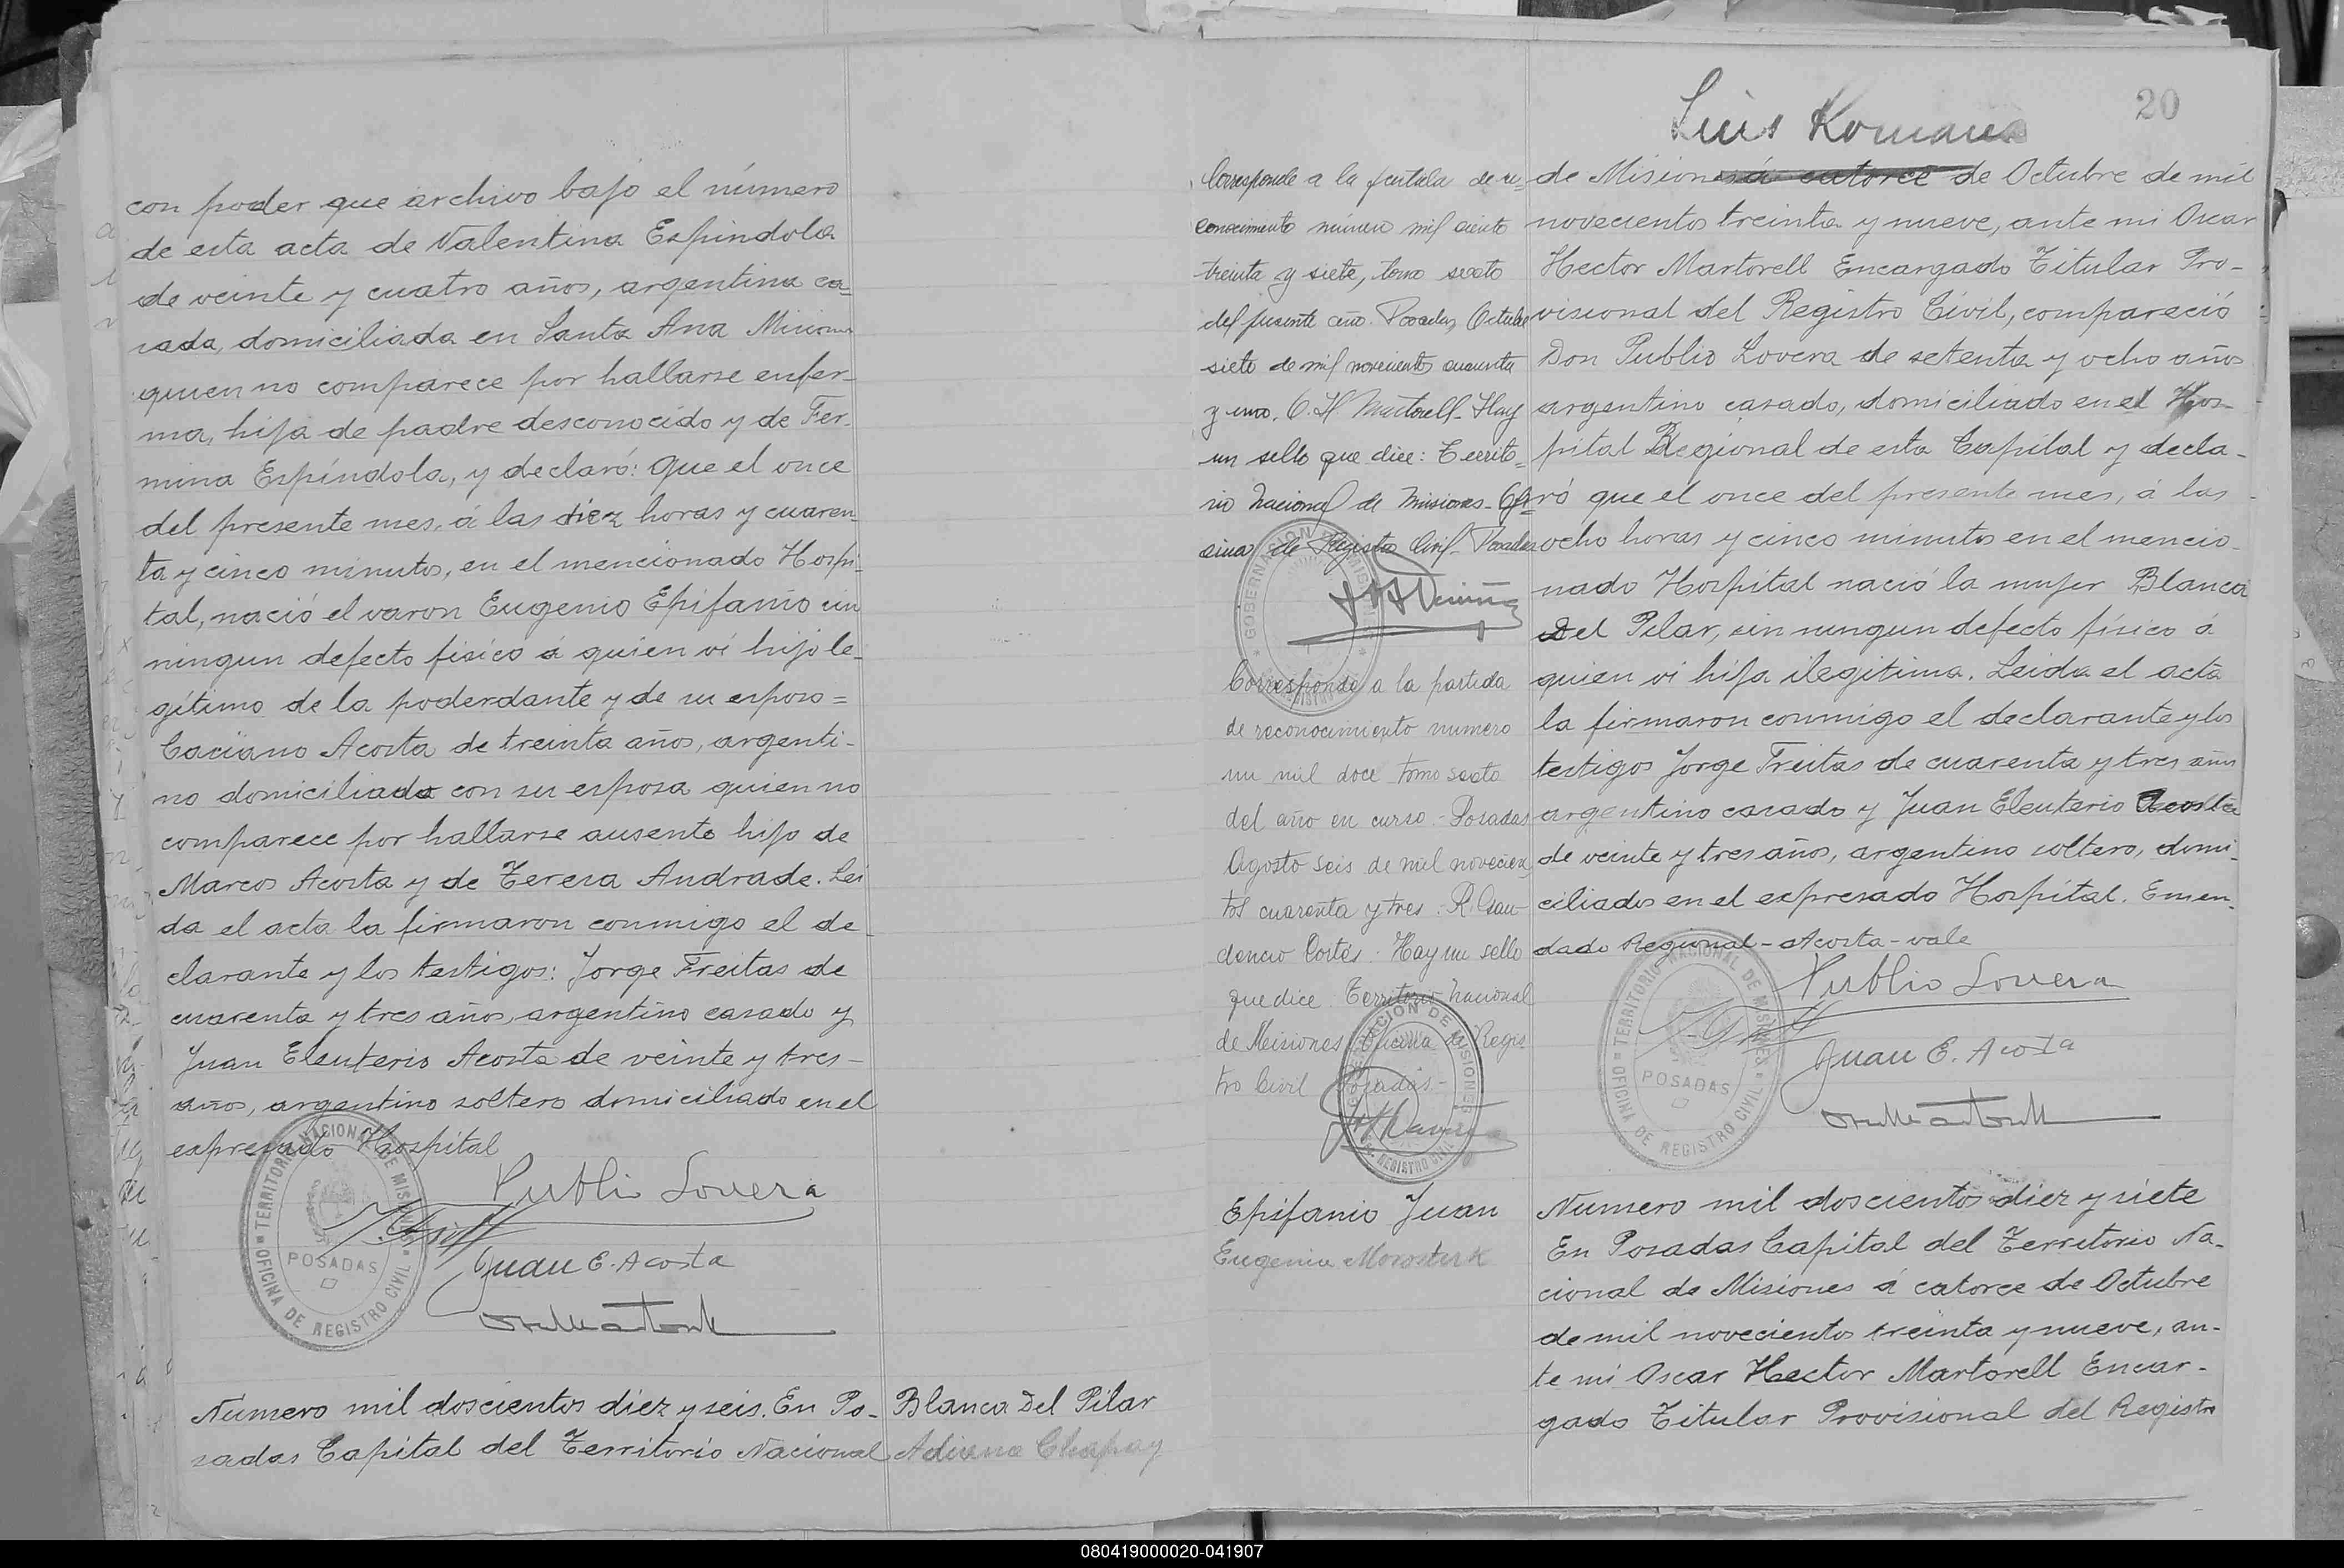 con poder que archivo bajo el número
de esta acta de Valentina Espíndola
de veinte y cuatro años, argentina ca-
sada, domiciliada en Santa Ana Misiones
quien no comparece por hallarse enfer-
ma, hija de padre desconocido y de Fer-
mina Espíndola, y declaró: que el once
del presente mes, á las diez horas y cuaren-
ta y cinco minutos, en el mencionado Hospi-
tal, nació el varon Eugenio Epifanio sin
ningun defecto físico á quien ví hijo le-
gítimo de la poderdante y de su esposo =
Caciano Acosta de treinta años, argenti-
no domiciliado con su esposa quien no
comparece por hallarse ausente hijo de
Marcos Acosta y de Teresa Andrade. Lei
da el acta la firmaron conmigo el de-
clarante y los testigos: Jorge Freitas de
cuarenta y tres años, argentino casado y
Juan Eleuterio Acosta de veinte y tres-
años, argentino soltero domiciliado en el
expresado Hospital
TERRITORIO NACIONAL DE MISIONES
OFICINA DE REGISTRO CIVIL
POSADAS
Publio Lovera
Juan E. Acosta
Numero mil doscientos diez y seis. En Po-
sadas Capital del Territorio Nacional
Blanca Del Pilar
Adiana Chapay
Luis Romano
20
Corresponde a la partida de re-
conocimiento número mil ciento
treinta y siete, tomo sexto
del presente año. Posadas, Octubre
siete de mil novecientos cuarenta
y uno. O. H. Martorell - Hay
un sello que dice: Territo-
rio Nacional de Misiones - Ofi-
cina de Registro Civil - Posadas
GOBERNACION DE MISIONES
Corresponde a la partida
de reconocimiento numero
un mil doce tomo sexto
del año en curso. - Posadas
Agosto seis de mil novecien
tos cuarenta y tres. R. Gau-
dencio Cortés. - Hay un sello
que dice. Territorio Nacional
de Misiones Oficina de Regis
tro Civil Posadas -
GOBERNACION DE MISIONES
REGISTRO CIVIL
Epifanio Juan
Eugenio
de Misiones á catorce de Octubre de mil
novecientos treinta y nueve, ante mi Oscar
Hector Martorell Encargado Titular Pro-
visional del Registro Civil, compareció
Don Publio Lovera de setenta y ocho años
argentino casado, domiciliado en el Hos-
pital Regional de esta Capital y decla-
ró que el once del presente mes, á las
ocho horas y cinco minutos en el mencio-
nado Hospital nació la mujer Blanca
Del Pilar, sin ningun defecto físico á
quien ví hija ilegítima. Leida el acta
la firmaron conmigo el declarante y los
testigos Jorge Freitas de cuarenta y tres años
argentino casado y Juan Eleuterio Acosta
de veinte y tres años, argentino soltero, domi-
ciliados en el expresado Hospital. Emen-
dado Regional - Acosta - vale
TERRITORIO NACIONAL DE MISIONES
OFICINA DE REGISTRO CIVIL
POSADAS
Publio Lovera
Juan E. Acosta
Numero mil doscientos diez y siete
En Posadas Capital del Territorio Na-
cional de Misiones á catorce de Octubre
de mil novecientos treinta y nueve, an-
te mi Oscar Hector Martorell Encar-
gado Titular Provisional del Registro
080419000020-041907